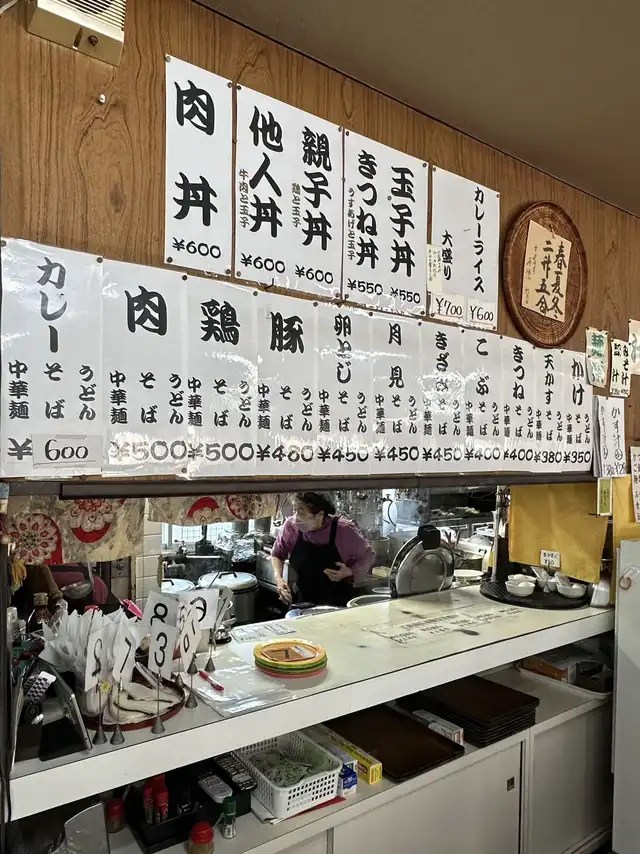 カレーライス
大盛り
¥700
¥600
玉子丼
¥550
きつね丼
うすあげと玉子
¥550
親子丼
鶏と玉子
¥600
他人丼
牛肉と玉子
¥600
肉丼
¥600
春夏冬
二升五合
かけ
うどん
そば
中華麺
¥350
天かす
うどん
そば
中華麺
¥380
きつね
うどん
そば
中華麺
¥400
こぶ
うどん
そば
中華麺
¥400
きざみ
うどん
そば
中華麺
¥450
月見
うどん
そば
中華麺
¥450
卵とじ
うどん
そば
中華麺
¥450
豚
うどん
そば
中華麺
¥480
鶏
うどん
そば
中華麺
¥500
肉
うどん
そば
中華麺
¥500
カレー
うどん
そば
中華麺
¥600
8
3